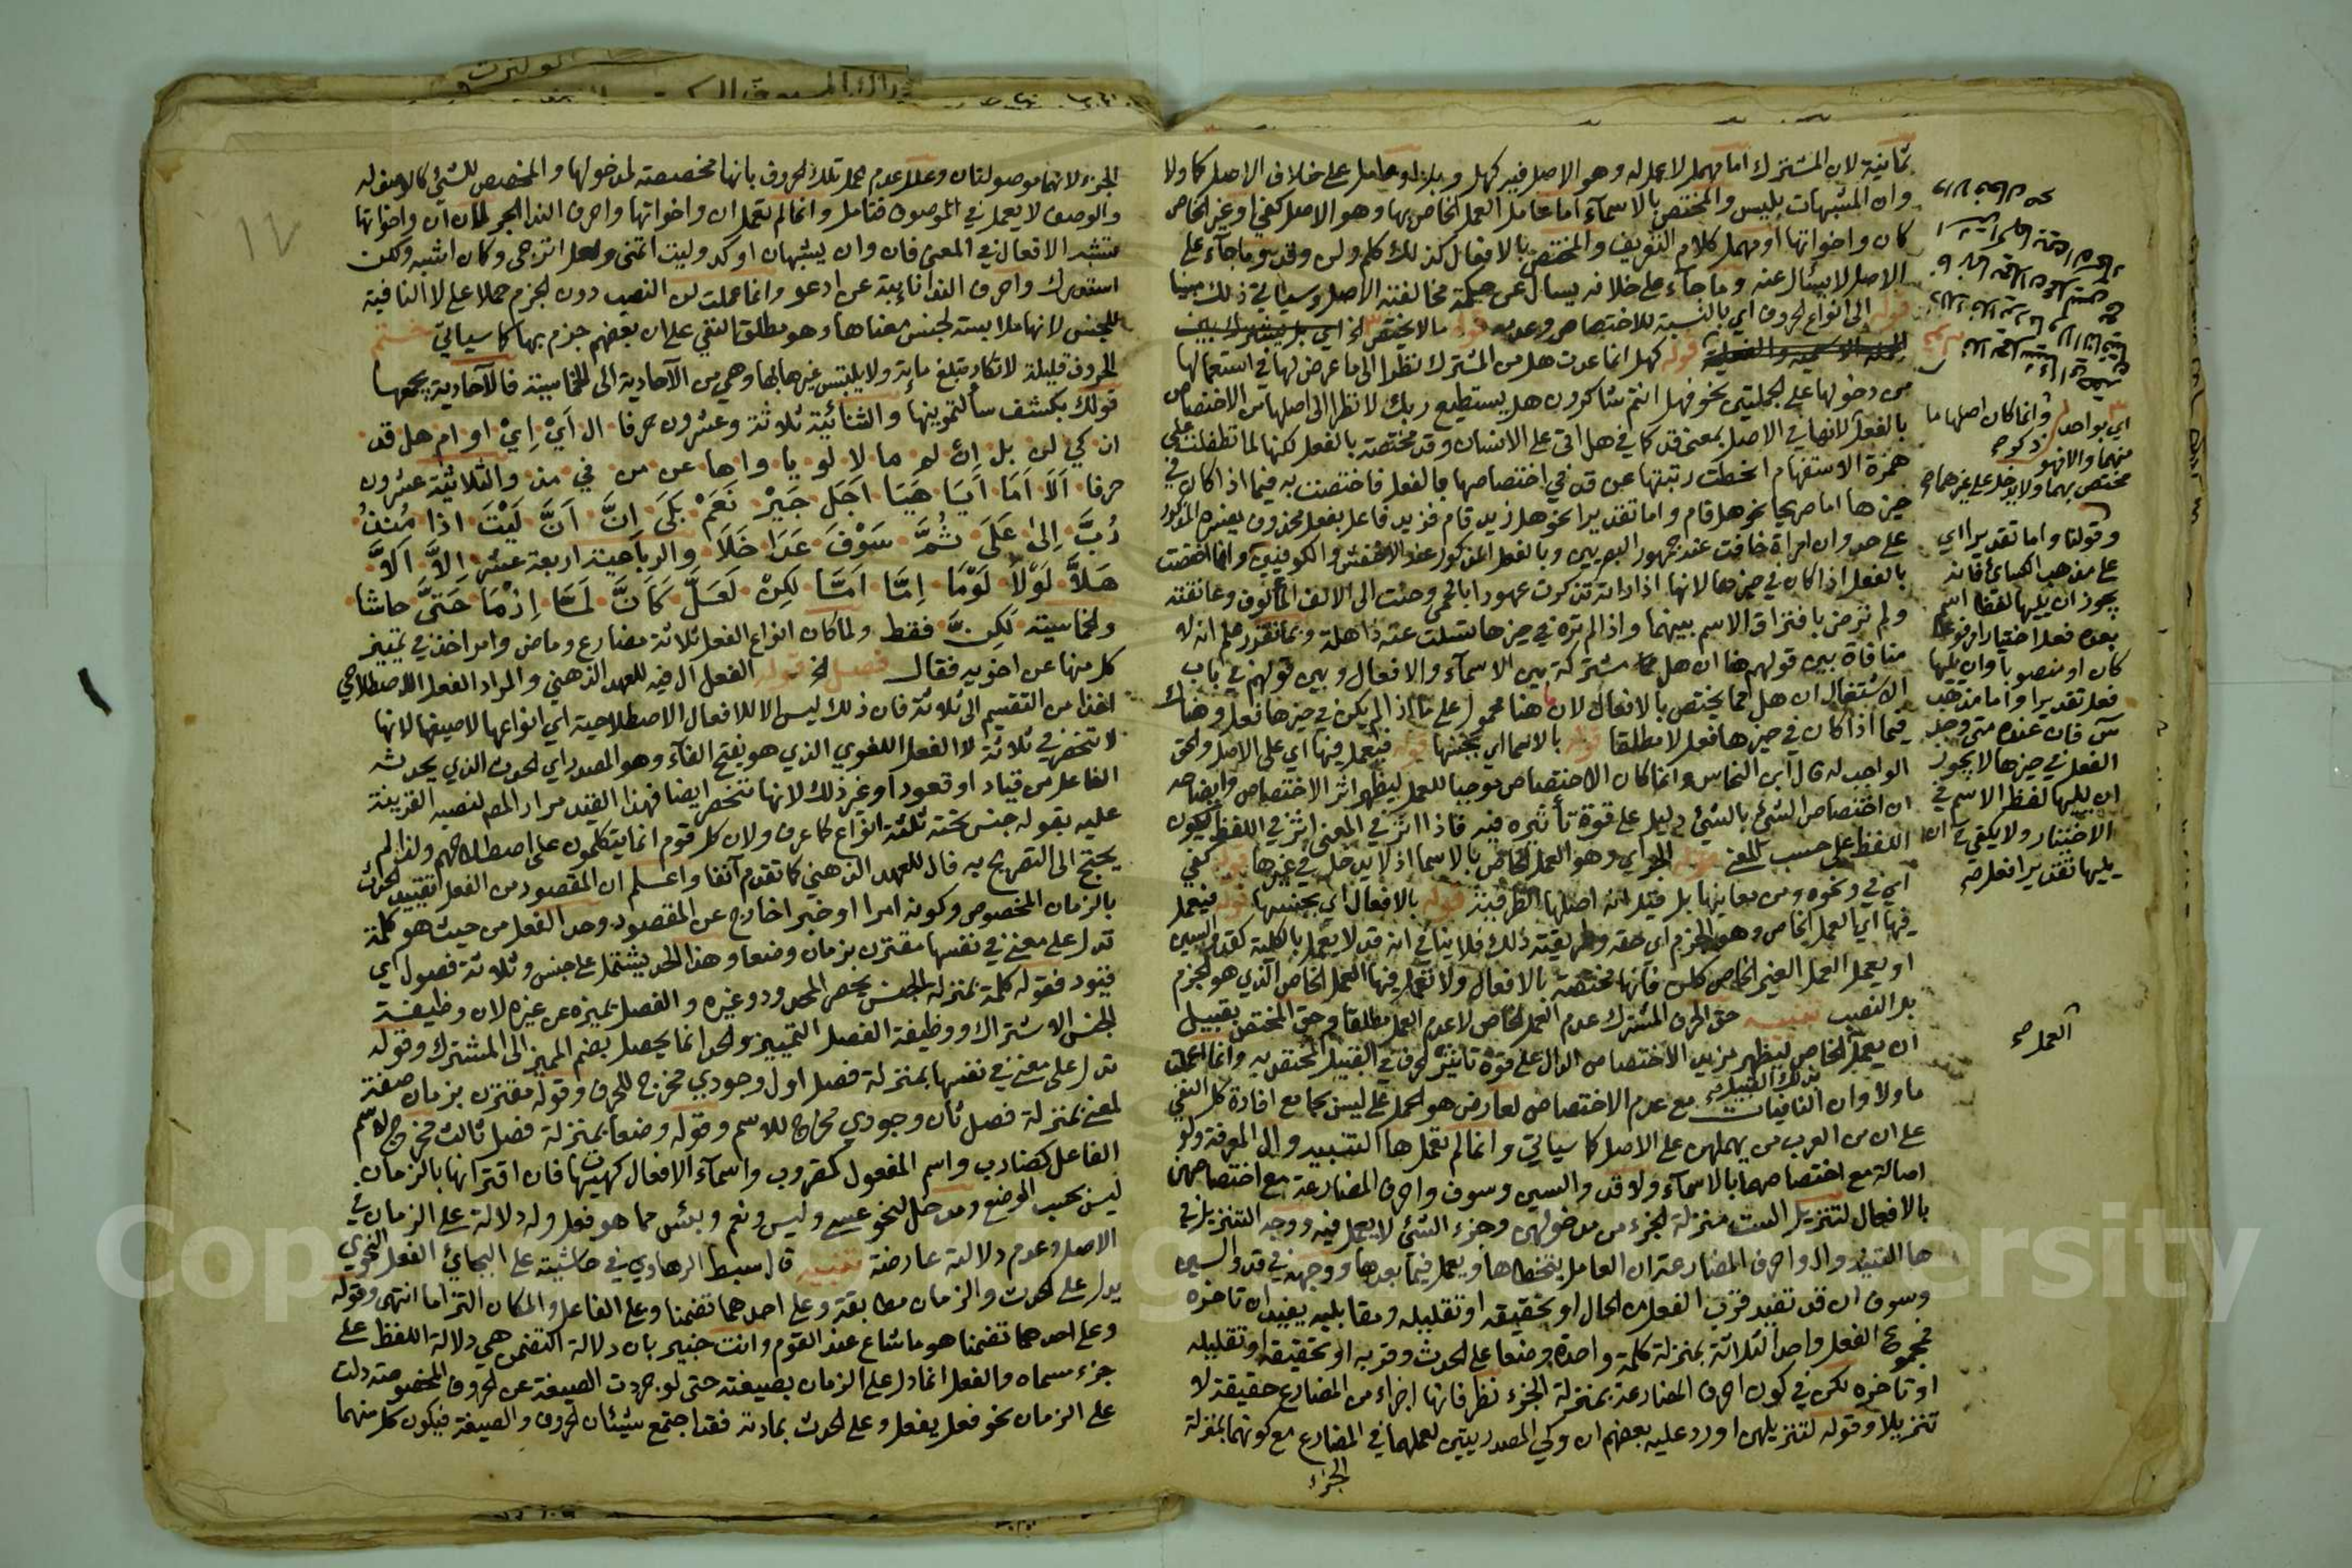 ثمانية لان المشترك اما مهمل لا عمل له وهو الاصل فيه كهل وبل او عامل على خلاف الاصل كما ولا
وان المشبهات بليس والمختص بالاسماء اما عامل العمل الخاص بها وهو الاصل كفي او غير الخاص
كان واخواتها او مهمل كلام التعريف والمختص بالافعال كذلك كلم ولن وقد وما جاء على
الاصل لا يسئال عنه وما جاء على خلافه يسال عن حكمة مخالفته الاصل وسياتي ذلك مبينا
قوله الى انواع الحروف اي بالنسبة للاختصاص وعدمه قوله ما لا يختص الخ اي بل يشترك بين
قوله كهل انما عدت هل من المشترك نظرا الى ما عرض لها في استعمالها
من دخولها على الجملتين نحو فهل انتم شاكرون هل يستطيع ربك لا نظرا الى اصلها من الاختصاص
بالفعل لانها في الاصل بمعنى قد كما في هل اتى على الانسان وقد مختصة بالفعل لكنها لما تطفلت على
همزة الاستفهام انحطت رتبتها عن قد في اختصاصها بالفعل فاختصت به فيما اذا كان في
حيزها اما صريحا نحو هل قام واما تقديرا نحو هل زيد قام فزيد فاعل بفعل محذوف يفسره المذكور
على حد وان امراة خافت عند جمهور البصريين وبالفعل المذكور عند الاخفش والكوفيين وانما اختصت
بالفعل اذا كان في حيزها لانها اذا راته تذكرت عهودا بالحمى وحنت الى الالف المألوف وعانقته
ولم ترض بافتراق الاسم بينهما واذا لم تره في حيزها تسلت عنه ذاهلة وبما تقرر علم انه لا
منافاة بين قولهم هنا ان هل مشتركة بين الاسماء والافعال وبين قولهم في باب
الاشتغال ان هل مما يختص بالافعال لان ما هنا محمول على ما اذا لم يكن في حيزها فعل وهناك
فيما اذا كان في حيزها فعل لا مطلقا قوله بالاسما اي بجنسها قوله فيعمل فيها اي على الاصل والحق
الواجب له قال ابن النحاس وانما كان الاختصاص موجبا للعمل ليظهر اثر الاختصاص وايضاحه
ان اختصاص الشئ بالشئ دليل على قوة تأثيره فيه فاذا اثر في المعنى اثر في اللفظ ليكون
اللفظ على حسب المعنى قوله الجر اي وهو العمل الخاص بالاسما اذ لا يدخل في غيرها قوله كفي
اي في ونحوه ومن معانيها بل قيل انه اصلها الظرفية قوله بالافعال اي بجنسها قوله فيعمل
فيها اي العمل الخاص وهو الجزم اى حقه وطريقته ذلك فلا ينافي انه قد لا يعمل بالكلية كقد والسين
او يعمل العمل الغير الخاص كلن فانها مختصة بالافعال ولا تعمل فيها العمل الخاص الذي هو الجزم
بل النصب تنبيه حق الحرف المشترك عدم العمل الخاص لا عدم العمل مطلقا وحق المختص بقبيل
ان يعمل العمل الخاص بذلك القبيل ليظهر مزيد الاختصاص الدال على قوة تاثير الحرف في القبيل المختص به وانما اعملت
ما ولا وان النافيات مع عدم الاختصاص لعارض هو الحمل على ليس بجامع افادة كل النفي
على ان من العرب من يهملهن على الاصل كما سياتي وانما لم تعمل ها التنبيه وال المعرفة ولو
اصالة مع اختصاصهما بالاسماء ولا قد والسين وسوف واحرف المضارعة مع اختصاصهن
بالافعال لتنزيل الست منزلة الجزء من مدخولهن وجزء الشئ لا يعمل فيه ووجه التنزيل في
ها التنبيه وال واحرف المضارعة ان العامل يتخطاها ويعمل فيما بعدها ووجهه في قد والسين
وسوف ان قد تفيد قرب الفعل من الحال او تحقيقه او تقليله ومقابليه يفيدان تاخره
فمجموع الفعل واحد الثلاثة بمنزلة كلمة واحدة وضعا على الحدث وقربه او تحقيقه او تقليله
او تاخره لكن في كون احرف المضارعة بمنزلة الجزء نظر فانها اجزاء من المضارع حقيقة لا
تنزيلا وقوله لتنزيلهن اورد عليه بعضهم ان وكي المصدريتين لعملهما في المضارع مع كونهما بمنزلة
الجزء
اي بواحد
وانما كان اصلها ما ذكر صح
مختص بهما ولا يدخل على غيرهما صح
وقولنا واما تقديرا اي
على مذهب الكسائي فانه
يجوز ان يليها لفظا اسم
بعده فعل اختيارا مرفوعا
كان او منصوبا وان يليها
فعل تقديرا واما مذهب
س فان عنده متى وجد
الفعل في حيزها لا يجوز
ان يليها لفظ الاسم في
الاختيار ولا يكفي ان
يليها تقديرا فعل صح
العمل صح
١٧
الجزء لانهما موصولتان وعلل عدم عمل تلك الحروف بانها مخصصة لمدخولها والمخصص للشئ كالوصف له
والوصف لا يعمل في الموصوف فتامل وانما لم تعمل ان واخواتها واحرف الندا الجر لان ان واخواتها
تشبه الافعال في المعنى فان وان يشبهان اوكد وليت اتمنى ولعل اترجى وكان اشبه ولكن
استدرك واحرف الندا نايبة عن ادعو وانما عملت لن النصب دون الجزم حملا على لا النافية
للجنس لانها ملابسة لجنس معناها وهو مطلق النفي على ان بعضهم جزم بها كما سياتي ختم
الحروف قليلة لا تكاد تبلغ ماية ولا يلتبس غيرها بها وهي من الآحادية الى الخماسية فالآحادية يجمعها
قولك بكشف سألتمونيها والثنائية ثلاثة وعشرون حرفا ال أي إي او ام هل قد
ان كي لن بل إن لم ما لا لو يا وا ها عن من في مذ والثلاثية عشرون
حرفا ألا أما أيا هيا أجل جير نعم بلى إن أن ليت اذا منذ
رب إلى على ثم سوف عدا خلا والرباعية اربعة عشر إلا ألا
هلا لولا لوما إما أما لكن لعل كأن لما إذما حتى حاشا
والخماسية لكن فقط ولما كان انواع الفعل ثلاثة مضارع وماض وامر اخذ في تمييز
كل منها عن اخويه فقال فصل الخ قوله الفعل ال فيه للعهد الذهني والمراد الفعل الاصطلاحي
اخذا من التقسيم الى ثلاثة فان ذلك ليس الا للافعال الاصطلاحية اي انواعها لا صيغها لانها
لا تنحصر في ثلاثة لا الفعل اللغوي الذي هو بفتح الفاء وهو المصدر اي الحدث الذي يحدثه
الفاعل من قيام او قعود او غير ذلك لانها تنحصر ايضا فهذا القيد مراد المص لنصبه القرينة
عليه بقوله جنس تحته ثلثة انواع كما عرف ولان كل قوم انما يتكلمون على اصطلاحهم ولذا لم
يحتج الى التصريح به فال للعهد الذهني كما تقدم آنفا واعلم ان المقصود من الفعل تقييد الحدث
بالزمان المخصوص وكونه امرا او خبرا خارج عن المقصود وحد الفعل من حيث هو كلمة
تدل على معنى في نفسها مقترن بزمان وضعا وهذا الحد يشتمل على جنس وثلاثة فصول اي
قيود فقوله كلمة بمنزلة الجنس يخص المحدود وغيره والفصل يميزه عن غيره لان وظيفة
الجنس الاشتراك ووظيفة الفصل التمييز والحد انما يحصل بضم المميز الى المشترك وقوله
تدل على معنى في نفسها بمنزلة فصل اول وجودي مخرج للحرف وقوله مقترن بزمان صفة
لمعنى بمنزلة فصل ثان وجودي مخرج للاسم وقوله وضعا بمنزلة فصل ثالث مخرج لاسم
الفاعل كضارب واسم المفعول كمضروب واسماء الافعال كهيهات فان اقترانها بالزمان
ليس بحسب الوضع ومدخل لنحو عسى وليس ونعم وبئس مما هو فعل وله دلالة على الزمان في
الاصل وعدم دلالته عارضة تنبيه قال سبط الرهاوي في حاشيته على البجائي الفعل النحوي
يدل على الحدث والزمان مطابقة وعلى احدهما تضمنا وعلى الفاعل والمكان التزاما انتهى وقوله
وعلى احدهما تضمنا هو ما شاع عند القوم وانت خبير بان دلالة التضمن هي دلالة اللفظ على
جزء مسماه والفعل انما دل على الزمان بصيغته حتى لو جردت الصيغة عن الحروف المخصوصة دلت
على الزمان نحو فعل يفعل وعلى الحدث بمادته فقد اجتمع شيئان الحروف والصيغة فيكون كل منهما